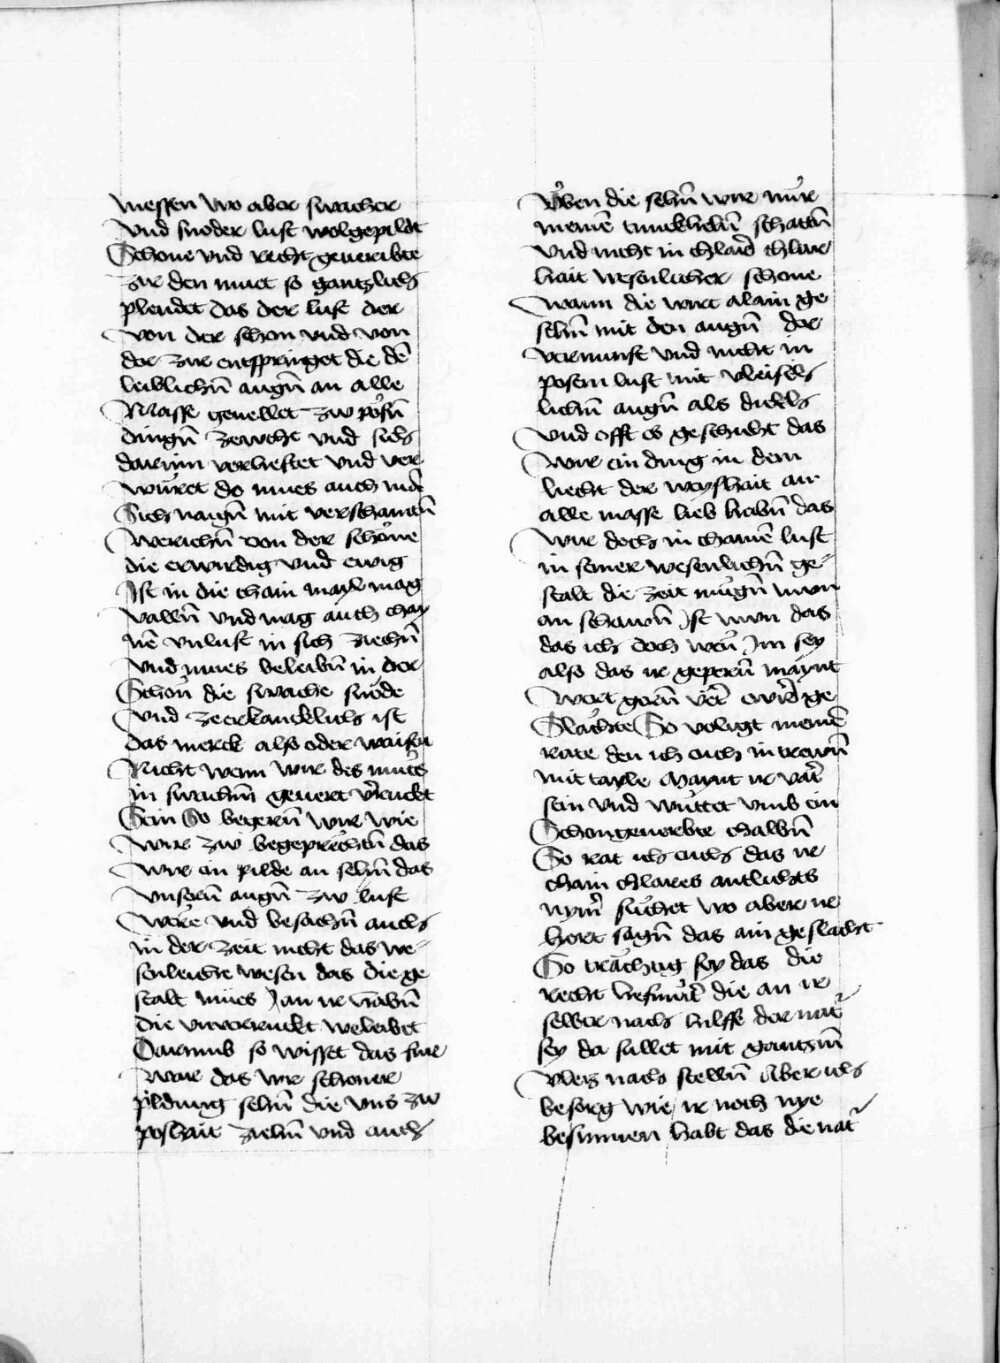 messen wo aber swacher
vnd snoder lust wolgepildt
Schone vnd recht geueribte
zir den muet so gantzlich
plendet das der lust der
von der schon vnd von
der zir entspringet die dē
leiblichn̄ augn̄ an alle
Masse geuellet zw posn̄
dingn̄ zewcht vnd sich
darinn verlieftet vnd ver
wurret do mues auch
Sich naign̄ mit verschamtn̄
werichn̄ von der schone
die erwirdig vnd ewig
Ist in die chain mayl mag
vallen̄ vnd mag auch chay
nē vnlust in sich ziechn̄
vnd mues beleibn̄ in der
Schon die swache snöde
vnd zeerkancklich ist
das merck also oder waist
Nicht wenn wir des muets
in swachm̄ geuert v̄ruckt
Sein So begern̄ wir wie
wir zw begeprechtn̄ das
wir ain pilde an sehn̄ das
vnsern̄ augn̄ zw lust
were vnd besachn̄ auch
in der zeit nicht das we
senleiche wesen das die ge
stalt mues an ir habn̄
die vnuerruckt weleibet
Darumb so wisset das fur
war das wir schoner
pildung sehn̄ die vns zw
poshait ziehn̄ vnd auch
Vben die sehn̄ wir nur
menē tunckheln̄ schatn̄
vnd nicht in chlarē chlar
hait wesenlicher schone
wann die wirt alain ge
sehn̄ mit den augn̄ der
vernunft vnd nicht in
posem lust mit vleisch
lichn̄ augn̄ als dickch
vnd offt es geschicht das
wir ein ding in dem
liecht der weyshait an
alle masse lieb habn̄ das
wir doch in chainē lust
in seiner wesenlichn̄ ge
stalt die zeit mugn̄ nun
an schawn̄ Ist nun das
das ich doch wen̄ Im sey
also das ir gepern̄ maynt
wert gern̄ vēt ewirē ge
Slachte So volgt meinē
rate den ich euch in trewn̄
mit tayle maynt ir vat̄
sein vnd wuttet vmb ein
Schongeuerbte chalbn̄
So rat ich euch das ir
chain chlares antluchts
nym̄ suchet wo aber ir
hort sagn̄ das ain geslacht
So trachtig sey das die
recht die an ir
selber nach hilffe der nat̄
sey da sullet mit gantzm̄
vleis nach stelln̄ Aber ich
besorg wie ir noch nye
besunnen habt das die nat̄